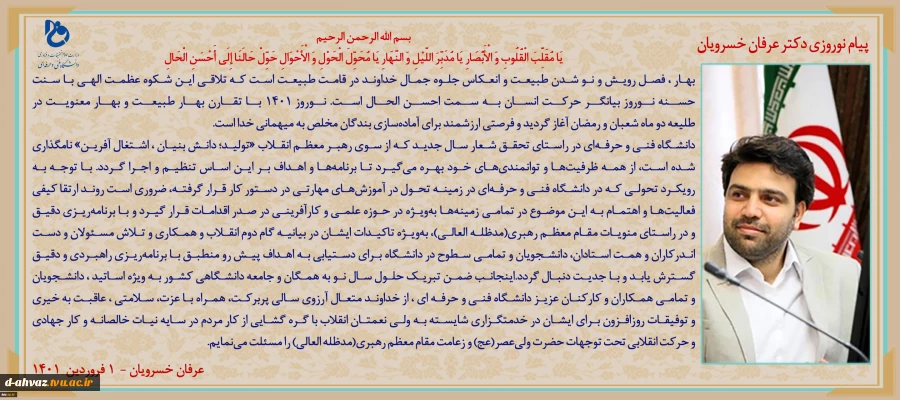 پیام نوروزی دکتر عرفان خسرویان
وزارت علوم، تحقیقات و فناوری
دانشگاه فنی و حرفه‌ای
بسم الله الرحمن الرحیم
يَا مُقَلِّبَ الْقُلُوبِ وَ الْأَبْصَارِ يَا مُدَبِّرَ اللَّيْلِ وَ النَّهَارِ يَا مُحَوِّلَ الْحَوْلِ وَ الْأَحْوَالِ حَوِّلْ حَالَنَا إِلَى أَحْسَنِ الْحَالِ
بهار، فصل رویش و نو شدن طبیعت و انعکاس جلوه جمال خداوند در قامت طبیعت است که تلاقی این شکوه عظمت الهی با سنت
حسنه نوروز بیانگر حرکت انسان به سمت احسن الحال است. نوروز ۱۴۰۱ با تقارن بهار طبیعت و بهار معنویت در
طلیعه دو ماه شعبان و رمضان آغاز گردید و فرصتی ارزشمند برای آماده‌سازی بندگان مخلص به میهمانی خدا است.
دانشگاه فنی و حرفه‌ای در راستای تحقق شعار سال جدید که از سوی رهبر معظم انقلاب «تولید؛ دانش بنیان، اشتغال آفرین» نامگذاری
شده است، از همه ظرفیت‌ها و توانمندی‌های خود بهره می‌گیرد تا برنامه‌ها و اهداف بر این اساس تنظیم و اجرا گردد. با توجه به
رویکرد تحولی که در دانشگاه فنی و حرفه‌ای در زمینه تحول در آموزش‌های مهارتی در دستور کار قرار گرفته، ضروری است روند ارتقا کیفی
فعالیت‌ها و اهتمام به این موضوع در تمامی زمینه‌ها به‌ویژه در حوزه علمی و کارآفرینی در صدر اقدامات قرار گیرد و با برنامه‌ریزی دقیق
و در راستای منویات مقام معظم رهبری(مدظله العالی)، به‌ویژه تاکیدات ایشان در بیانیه گام دوم انقلاب و همکاری و تلاش مسئولان و دست
اندرکاران و همت استادان، دانشجویان و تمامی سطوح در دانشگاه برای دستیابی به اهداف پیش رو منطبق با برنامه‌ریزی راهبردی و دقیق
گسترش یابد و با جدیت دنبال گردد.اینجانب ضمن تبریک حلول سال نو به همگان و جامعه دانشگاهی کشور به ویژه اساتید، دانشجویان
و تمامی همکاران و کارکنان عزیز دانشگاه فنی و حرفه ای، از خداوند متعال آرزوی سالی پربرکت، همراه با عزت، سلامتی، عاقبت به خیری
و توفیقات روزافزون برای ایشان در خدمتگزاری شایسته به ولی نعمتان انقلاب با گره گشایی از کار مردم در سایه نیات خالصانه و کار جهادی
و حرکت انقلابی تحت توجهات حضرت ولی‌عصر(عج) و زعامت مقام معظم رهبری(مدظله العالی) را مسئلت می‌نمایم.
عرفان خسرویان - ۱ فروردین ۱۴۰۱
d-ahvaz.tvu.ac.ir